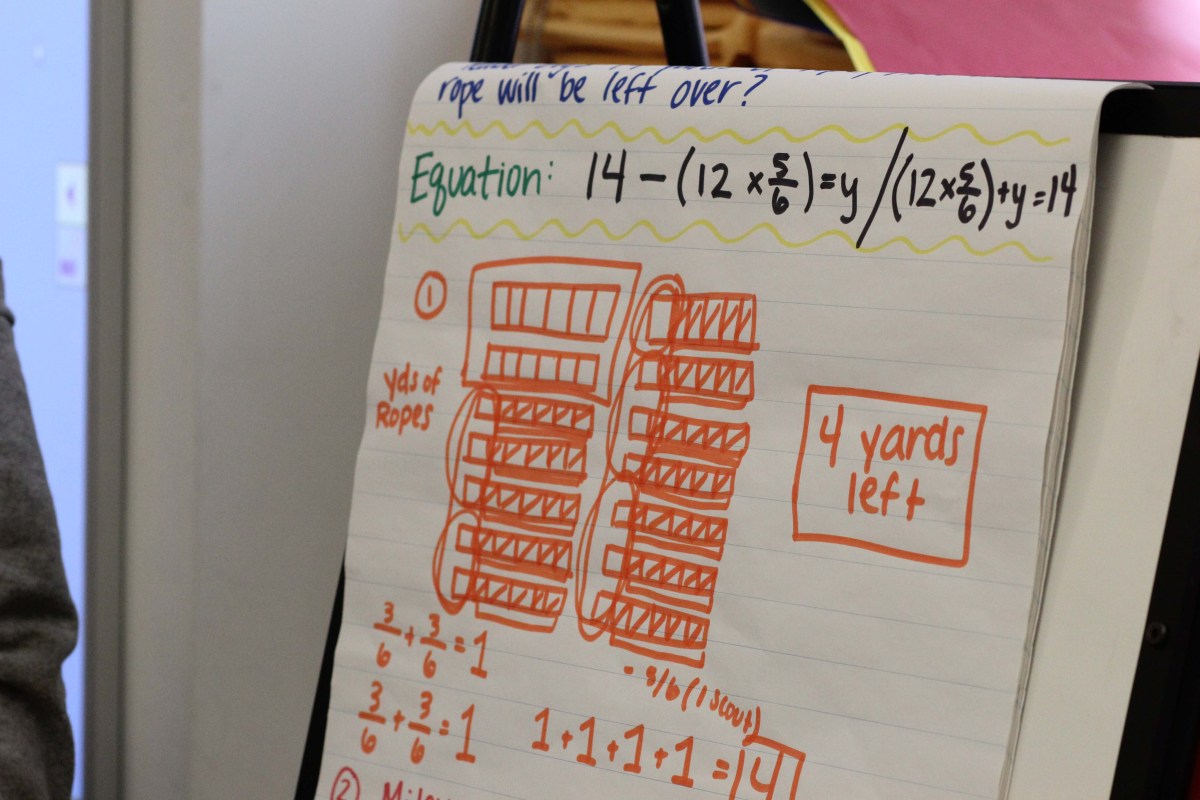 rope will be left over?
Equation: 14 - (12 × 5/6) = y / (12 × 5/6) + y = 14
①
yds of
Ropes
4 yards
left
3/6 + 3/6 = 1
- 5/6 (1 scout)
3/6 + 3/6 = 1
1 + 1 + 1 + 1 = 4
②